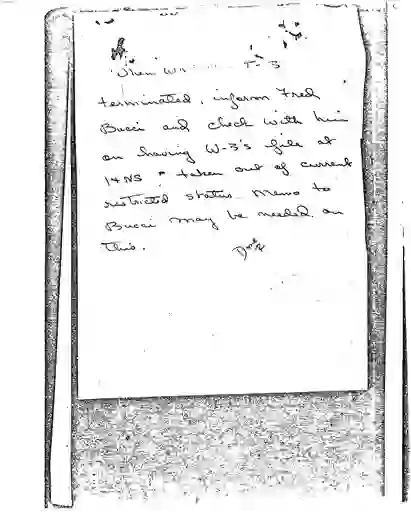 When W
terminated, inform Fred
Bucci and check with him
on having W-3's file at
14 NS taken out of current
restricted status. Memo to
Bucci may be needed on
this.